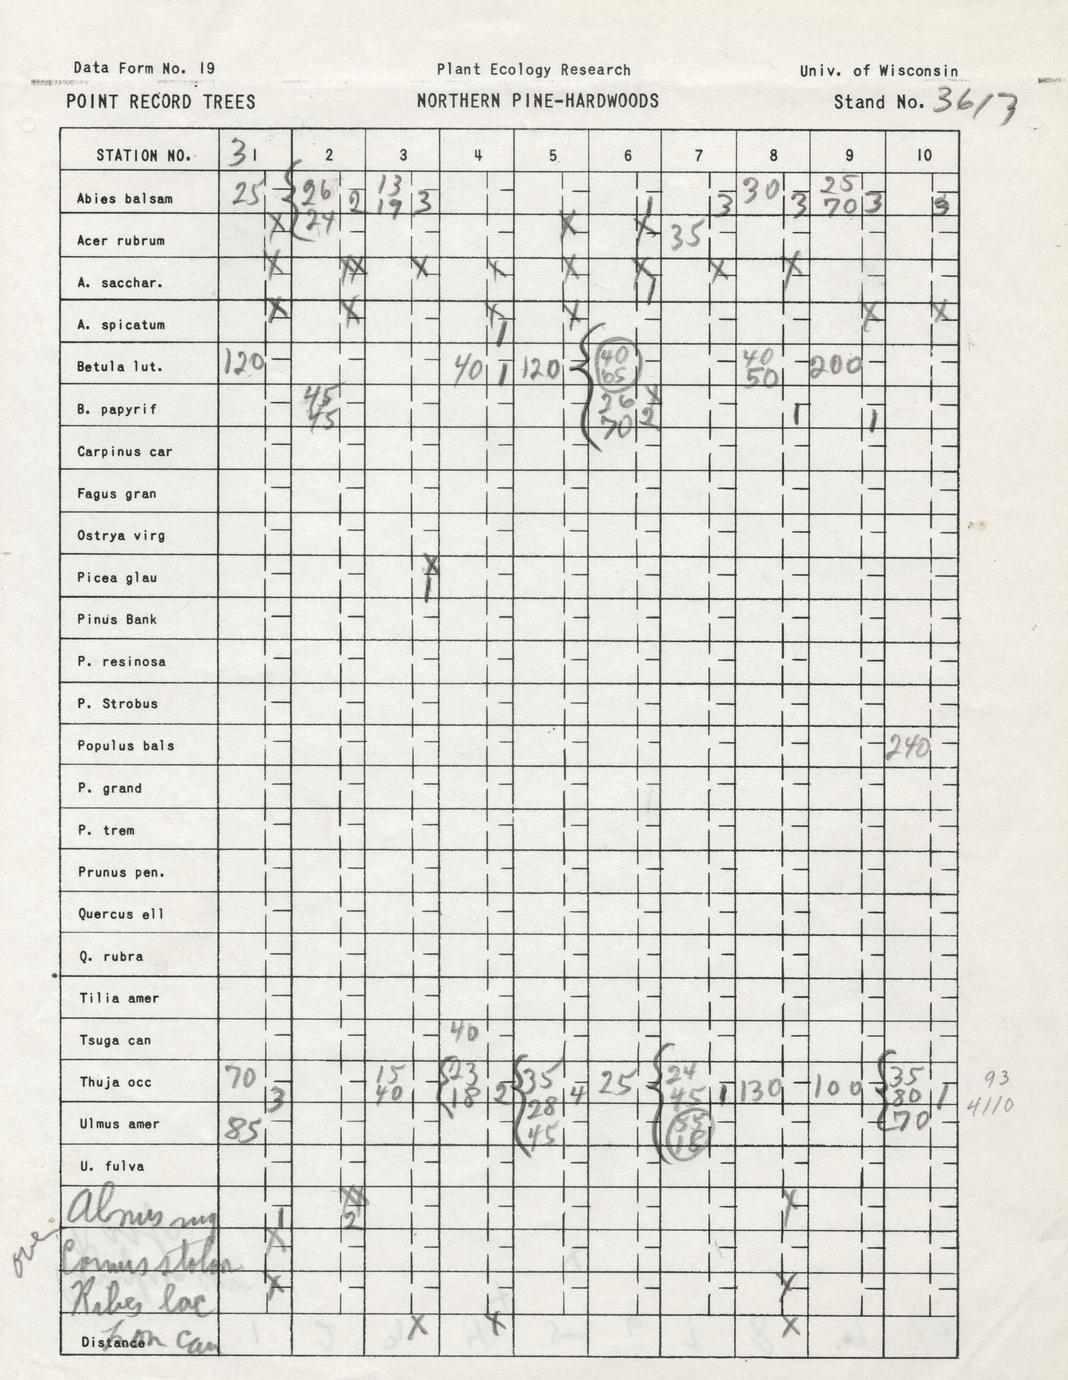 Data Form No. 19 Plant Ecology Research Univ. of Wisconsin
POINT RECORD TREES NORTHERN PINE-HARDWOODS Stand No. 3613
STATION NO. 31 2 3 4 5 6 7 8 9 10
Abies balsam 25 { 26 24 2 13 19 3 1 3 30 3 25 70 3 3
Acer rubrum X X X 35
A. sacchar. X XX X X X X 1 X X
A. spicatum X X X 1 X X X
Betula lut. 120 40 1 120 { 40 65 40 50 200
B. papyrif 45 45 26 70 X 2 1 1
Carpinus car
Fagus gran
Ostrya virg
Picea glau X 1
Pinus Bank
P. resinosa
P. Strobus
Populus bals 240
P. grand
P. trem
Prunus pen.
Quercus ell
Q. rubra
Tilia amer
Tsuga can 40
Thuja occ 70 3 15 40 { 23 18 2 { 35 28 45 4 25 { 24 45 55 18 1 130 100 { 35 80 70 1 93
4110
Ulmus amer 85
U. fulva
Alnus rug 1 XX 2 X
over Cornus stolon X
Ribes lac X X
Distance Lon can X X X